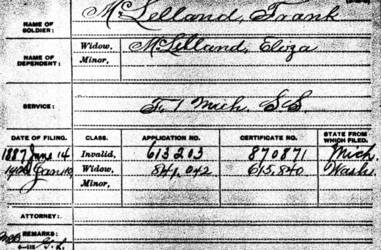 NAME OF SOLDIER: McLelland, Frank
NAME OF DEPENDENT: Widow, McLelland, Eliza
Minor,
SERVICE: F, 1 Mich. S.S.
DATE OF FILING. CLASS. APPLICATION NO. CERTIFICATE NO. STATE FROM WHICH FILED.
1887 June 14 Invalid, 613203 870871 Mich.
Jan Widow, 841,042 615,840 Wash.
Minor,
ATTORNEY:
REMARKS: